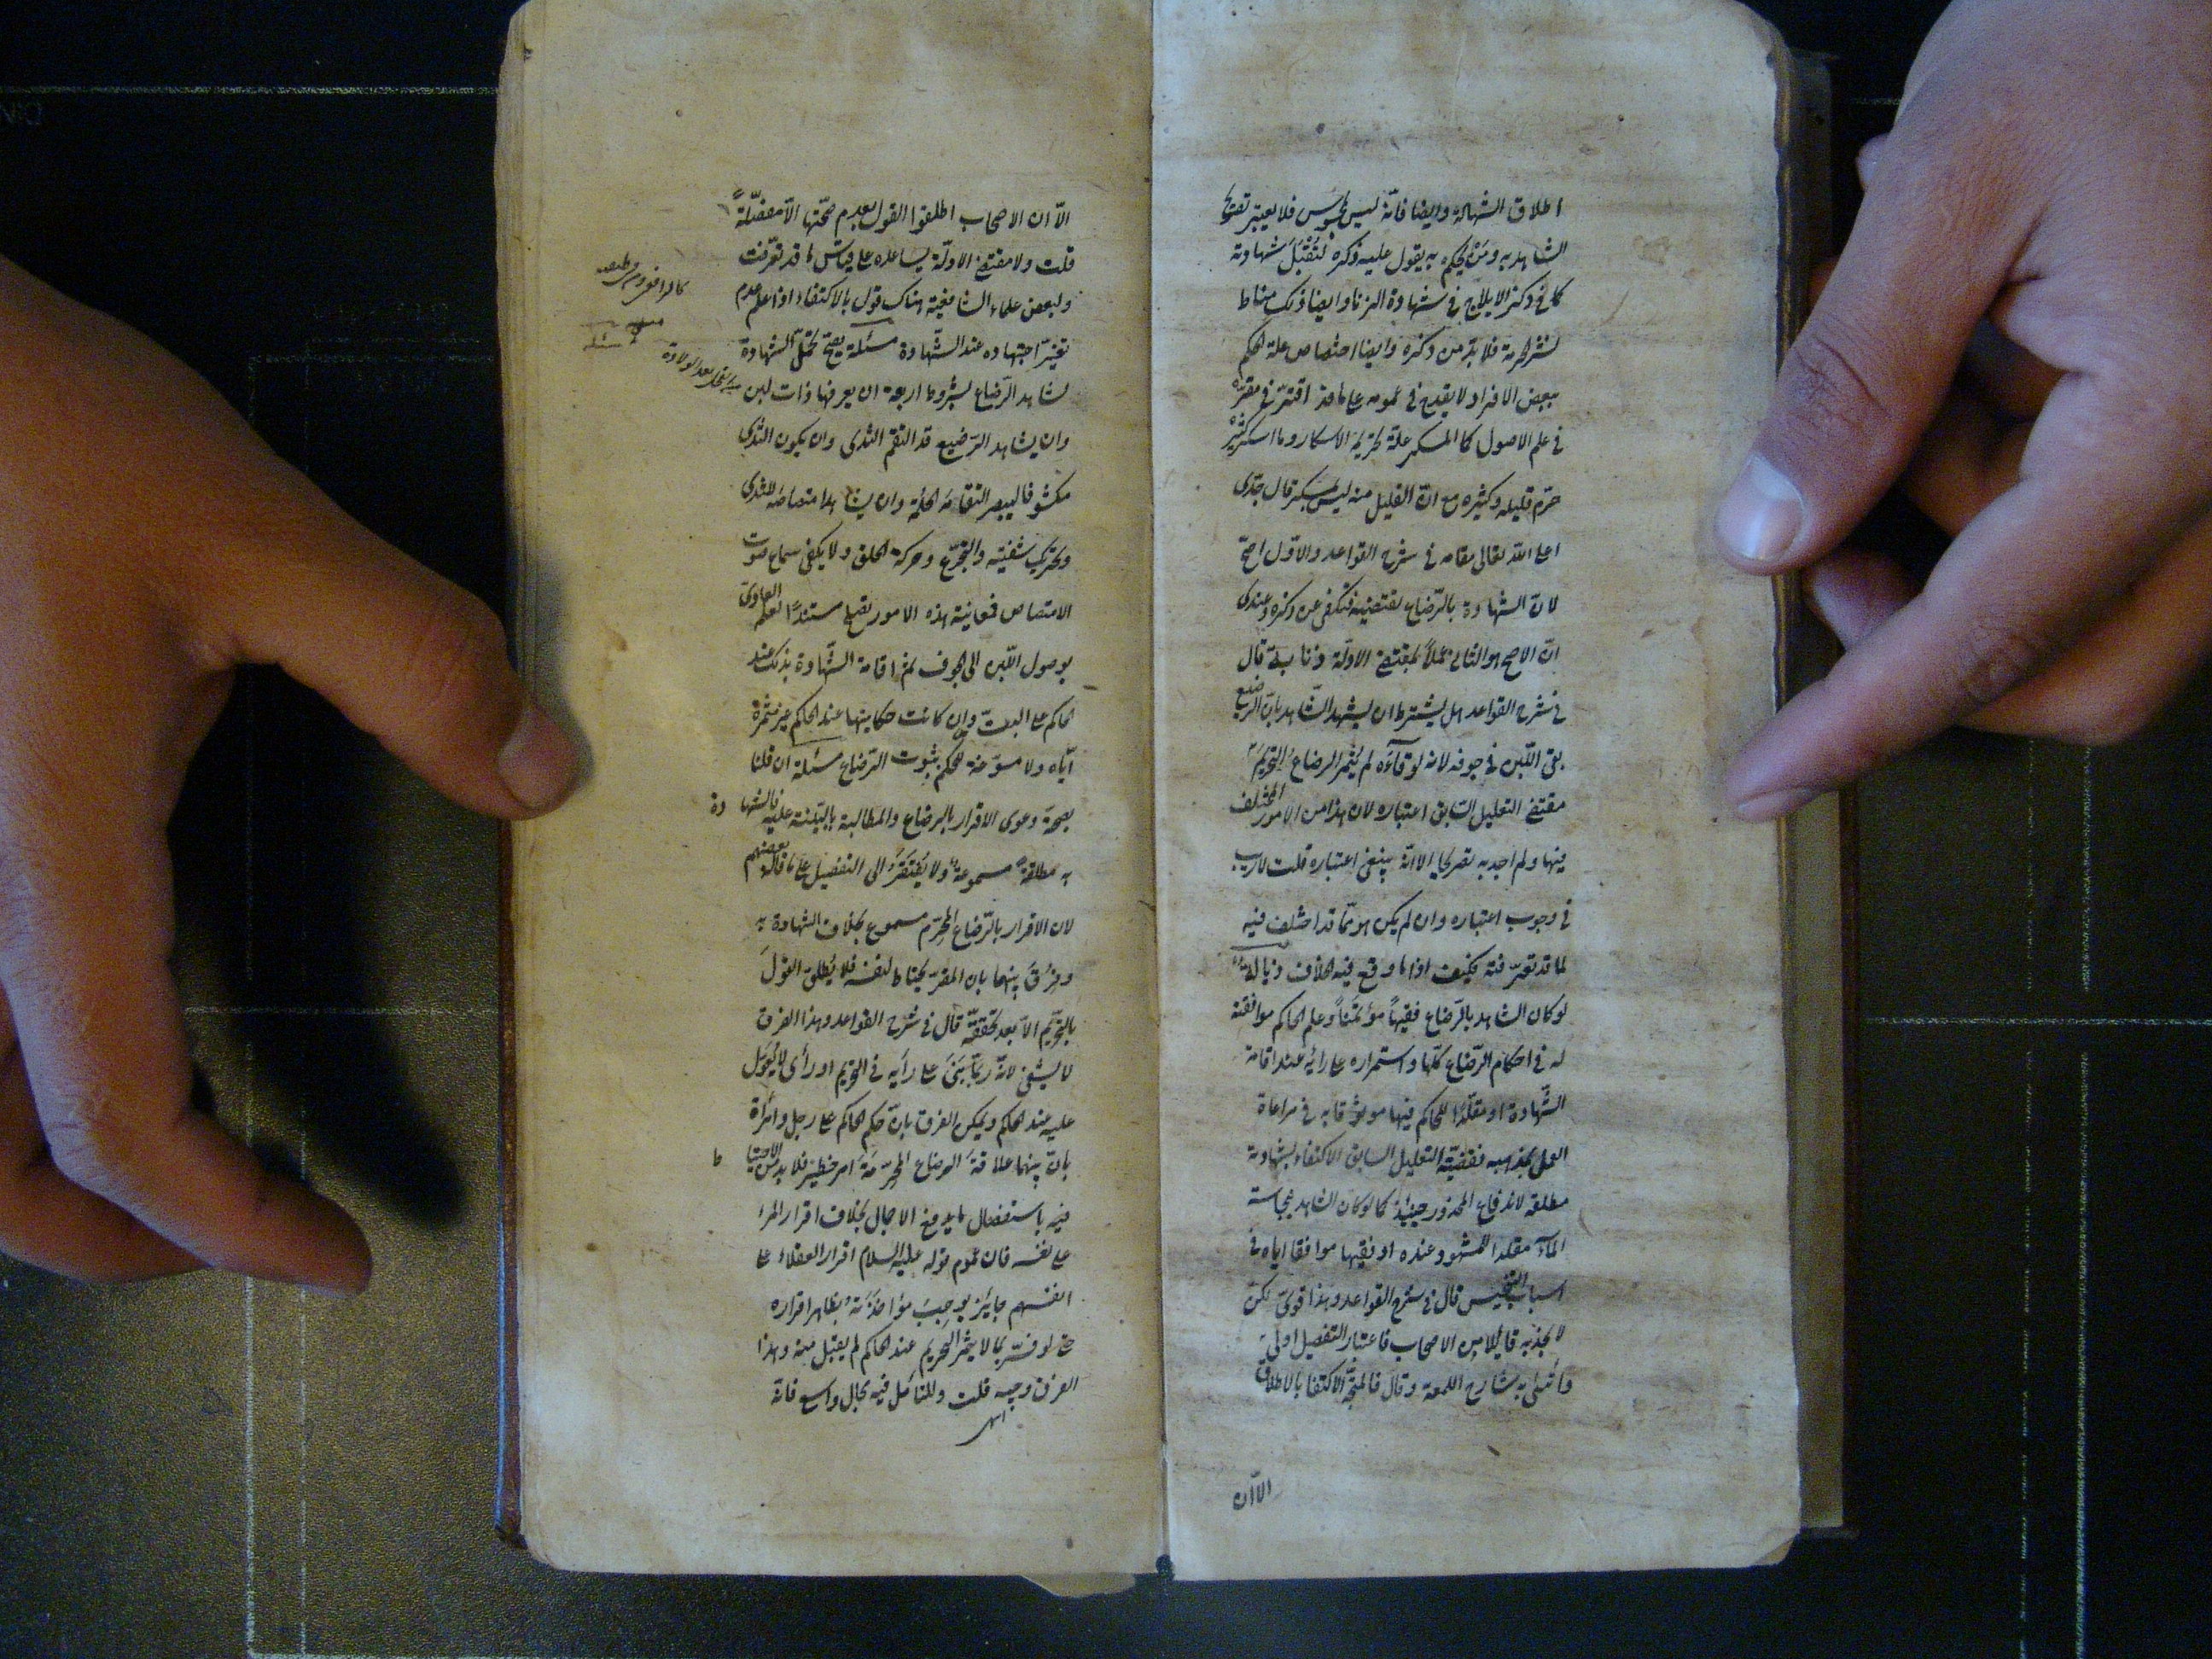 اطلاق الشهادة وايضا فانّه ليس بمحسوس فلا يعتبر تصريح
الشاهد به ومَنْ يحكم به يقول عليه ذكره لتُقْبَلَ شهادته
كما في ذكر الايلاج في شهادة الزنا وايضا ذلك مناط
نشر الحرمة فلا بدّ من ذكره وايضا اختصاص علة الحكم
ببعض الافراد لا يقدح في عمومه على ما قد اقترّ في مقرّه
في علم الاصول كالمسكر علّة تحريمه الاسكار وما اسكر كثيره
حرّم قليله وكثيره مع انّ القليل منه ليس بمسكر قال جدّى
اعلى الله تعالى مقامه في شرح القواعد والاوّل اصحّ
لانّ الشهادة بالرّضاع تقتضيه فتكفى عن ذكره وعندى
انّ الاصح هو الثانى عملاً بمقتضى الادلّة ذنابة قال
في شرح القواعد هل يشترط ان يشهد الشّاهد بانّ الرضيع
بقى اللّبن في جوفه لانه لو قاءه لم يُثمر الرضاع التحريمَ
مقتضى التعليل السّابق اعتباره لان هذا من الامور المختلف
فيها ولم اجد به تصريحا الا انّه ينبغى اعتباره قلت لا ريب
في وجوب اعتباره وان لم يكن هو ممّا قد اختلف فيه
لما قد تعرّفته فكيف اذا ما وقع فيه الخلاف ذبالة
لو كان الشاهد بالرّضاع فقيهاً مؤتمَناً وعلم الحاكم موافقته
له في احكام الرّضاع كلّها واستمراره على رأيه عند اقامة
الشّهادة او مقلّدًا للحاكم فيها موثوقا به في مراعاة
العمل بمذهبه فقضيّة التعليل السابق الاكتفاء بشهادته
مطلقة لاندفاع المحذور حينئذ كما لو كان الشاهد بنجاسة
الماء مقلدا للمشهود عنده او فقيها موافقا اياه في
اسباب التنجيس قال في شرح القواعد وهذا قوىّ لكن
لا نجد به قائلا من الاصحاب فاعتبار التفصيل اولى
وأتسى به شارح اللمعة وقال فالمتّجه الاكتفا بالاطلاق
الّا ان
الّا ان الاصحاب اطلقوا القول بعدم صحّتها الّا مفصّلةً
قلت ولا مقتضى الادلّة يساعده على ما قد تعرّفت
ولبعض علماء الشافعيّة هناك قول بالاكتفاء اذا علم عدم
تغيّر اجتهاده عند الشّهادة مسئلة يصحّ تحمّل الشهادة
لشاهد الرّضاع بشروط اربعة ان يعرفها ذات لبن
وان يشاهد الرّضيع قد التقم الثدى وان يكون الثدى
مكشوفا ليبصر التقامَه الحلمة وان يشاهد امتصاصَه للثدى
وتحريك شفتيه والتجرّع وحركة الحلق ولا يكفى سماع صوت
الامتصاص فمعاينة هذه الامور يقع مستندًا لعلم العادىّ
بوصول اللّبن الى الجوف ثم اقامة الشّهادة بذلك عند
الحاكم على البتّ وان كانت حكايتها عند الحاكم غير مثمرة
ايّاه ولا مسوّغة للحكم بثبوت الرّضاع مسئلة ان قلنا
بصحّة دعوى الاقرار بالرضاع والمطالبة بالبيّنة عليه فالشهادة
به مطلقةً مسموعة ولا يُفتقَرُ الى التفصيل على ما قاله بعضهم
لان الاقرار بالرّضاع المحرّم مسموع بخلاف الشهادة به
وفرّق بينهما بان المقرّ يحتاط لنفسه فلا يُطلق القولَ
بالتحريم الّا بعد تحقّقه قال في شرح القواعد وهذا الفرق
لا يشفى لانّه ربّما بَنَى على رأيه في التحريم او رأى لا يُعوّل
عليه عند الحاكم ويمكن الفرق بانّ حكم الحاكم على رجل وامرأة
بانّ بينهما علاقةَ الرضاع المحرّمة امر خطير فلا بد من الاحتياط
فيه باستفصال ما يدفع الاجمال بخلاف اقرار المرء
على نفسه فان عموم قوله عليه السلام اقرار العقلاء على
انفسهم جايز يوجبُ مؤاخذته بظاهر اقراره
حتى لو فسّر بما لا يثمر التحريم عند الحاكم لم يقبل منه وهذا
الفرق وجيه قلت وللتأمّل فيه مجال واسع فانه